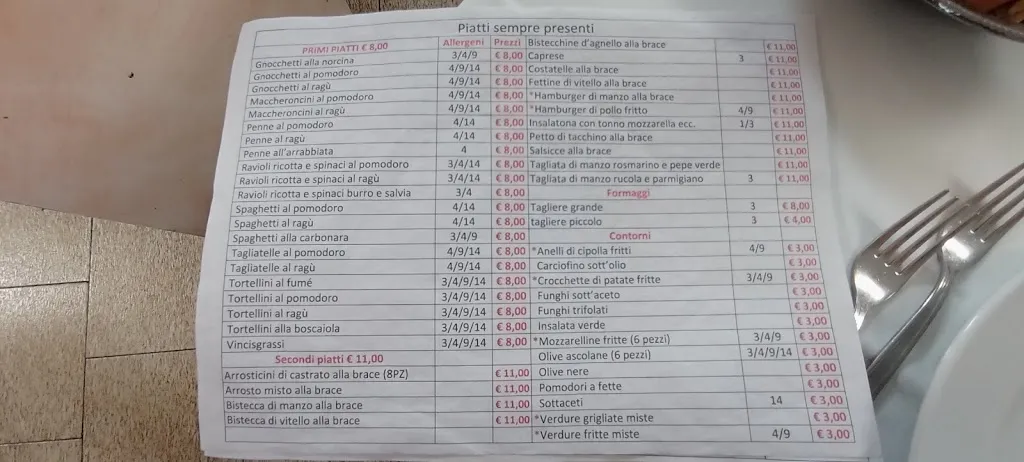 Piatti sempre presenti
PRIMI PIATTI € 8,00 Allergeni Prezzi
Gnocchetti alla norcina 3/4/9 € 8,00
Gnocchetti al pomodoro 4/9/14 € 8,00
Gnocchetti al ragù 4/9/14 € 8,00
Maccheroncini al pomodoro 4/9/14 € 8,00
Maccheroncini al ragù 4/9/14 € 8,00
Penne al pomodoro 4/14 € 8,00
Penne al ragù 4/14 € 8,00
Penne all'arrabbiata 4 € 8,00
Ravioli ricotta e spinaci al pomodoro 3/4/14 € 8,00
Ravioli ricotta e spinaci al ragù 3/4/14 € 8,00
Ravioli ricotta e spinaci burro e salvia 3/4 € 8,00
Spaghetti al pomodoro 4/14 € 8,00
Spaghetti al ragù 4/14 € 8,00
Spaghetti alla carbonara 3/4/9 € 8,00
Tagliatelle al pomodoro 4/9/14 € 8,00
Tagliatelle al ragù 4/9/14 € 8,00
Tortellini al fumé 3/4/9/14 € 8,00
Tortellini al pomodoro 3/4/9/14 € 8,00
Tortellini al ragù 3/4/9/14 € 8,00
Tortellini alla boscaiola 3/4/9/14 € 8,00
Vincisgrassi 3/4/9/14 € 8,00
Secondi piatti € 11,00
Arrosticini di castrato alla brace (8PZ) € 11,00
Arrosto misto alla brace € 11,00
Bistecca di manzo alla brace € 11,00
Bistecca di vitello alla brace € 11,00
Bistecchine d'agnello alla brace € 11,00
Caprese 3 € 11,00
Costatelle alla brace € 11,00
Fettine di vitello alla brace € 11,00
*Hamburger di manzo alla brace € 11,00
*Hamburger di pollo fritto 4/9 € 11,00
Insalatona con tonno mozzarella ecc. 1/3 € 11,00
Petto di tacchino alla brace € 11,00
Salsicce alla brace € 11,00
Tagliata di manzo rosmarino e pepe verde € 11,00
Tagliata di manzo rucola e parmigiano 3 € 11,00
Formaggi
Tagliere grande 3 € 8,00
tagliere piccolo 3 € 4,00
Contorni
*Anelli di cipolla fritti 4/9 € 3,00
Carciofino sott'olio € 3,00
*Crocchette di patate fritte 3/4/9 € 3,00
Funghi sott'aceto € 3,00
Funghi trifolati € 3,00
Insalata verde € 3,00
*Mozzarelline fritte (6 pezzi) 3/4/9 € 3,00
Olive ascolane (6 pezzi) 3/4/9/14 € 3,00
Olive nere € 3,00
Pomodori a fette € 3,00
Sottaceti 14 € 3,00
*Verdure grigliate miste € 3,00
*Verdure fritte miste 4/9 € 3,00